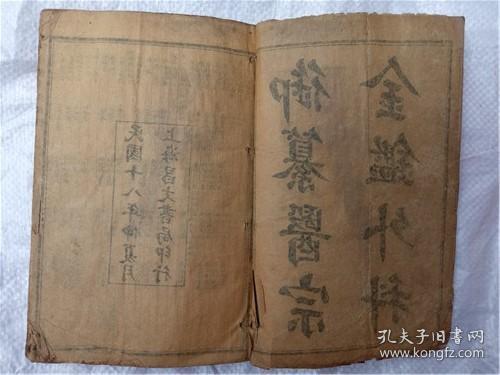 御纂醫宗
金鑑外科
民國十八年夏月
上海昌文書局印行
孔夫子旧书网
www.kongfz.com